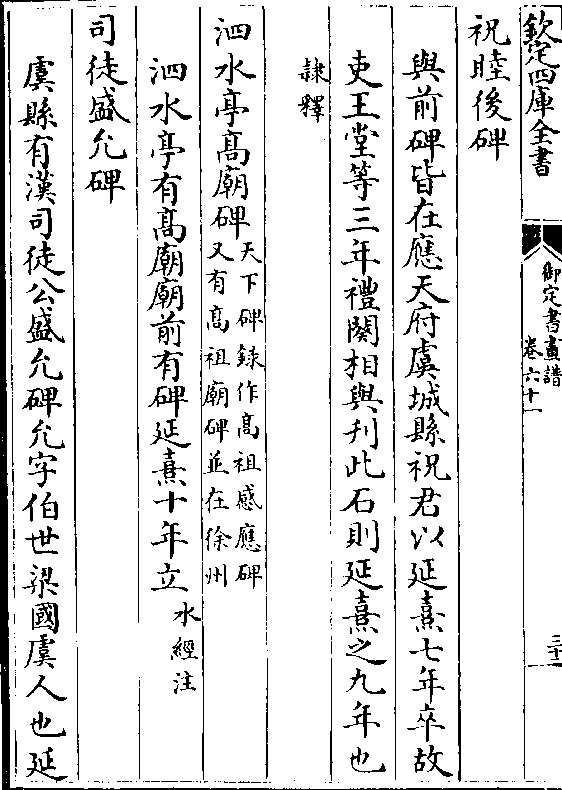 欽定四庫全書
御定書畫譜
卷六十一
三十一
祝睦後碑
與前碑皆在應天府虞城縣祝君以延熹七年卒故
吏王堂等三年禮闋相與刋此石則延熹之九年也
隸釋
泗水亭髙廟碑
天下碑錄作髙祖感應碑
又有髙祖廟碑並在徐州
泗水亭有髙廟廟前有碑延熹十年立
水經注
司徒盛允碑
虞縣有漢司徒公盛允碑允字伯世梁國虞人也延